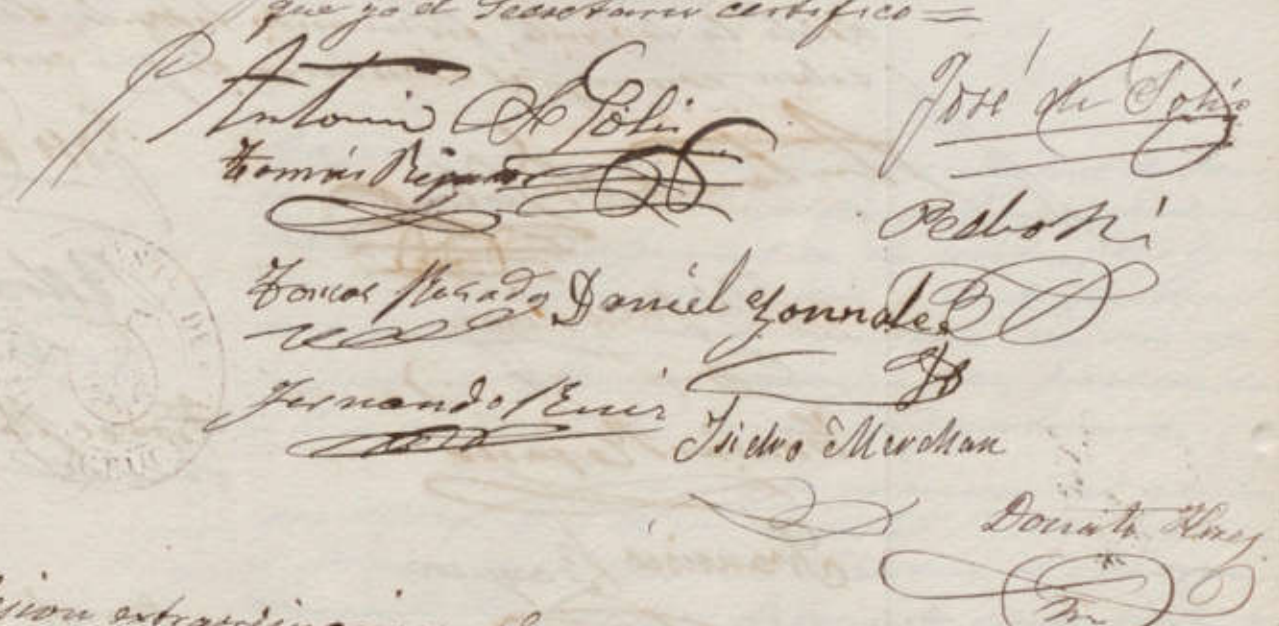 que yo el Secretario certifico=
Antonio de Solis José de Solis
Tomás Pedro
Tomas Rosado Daniel Gonzalez
Fernando Ruiz
Isidro Merchan
Donato
sion extraordinaria